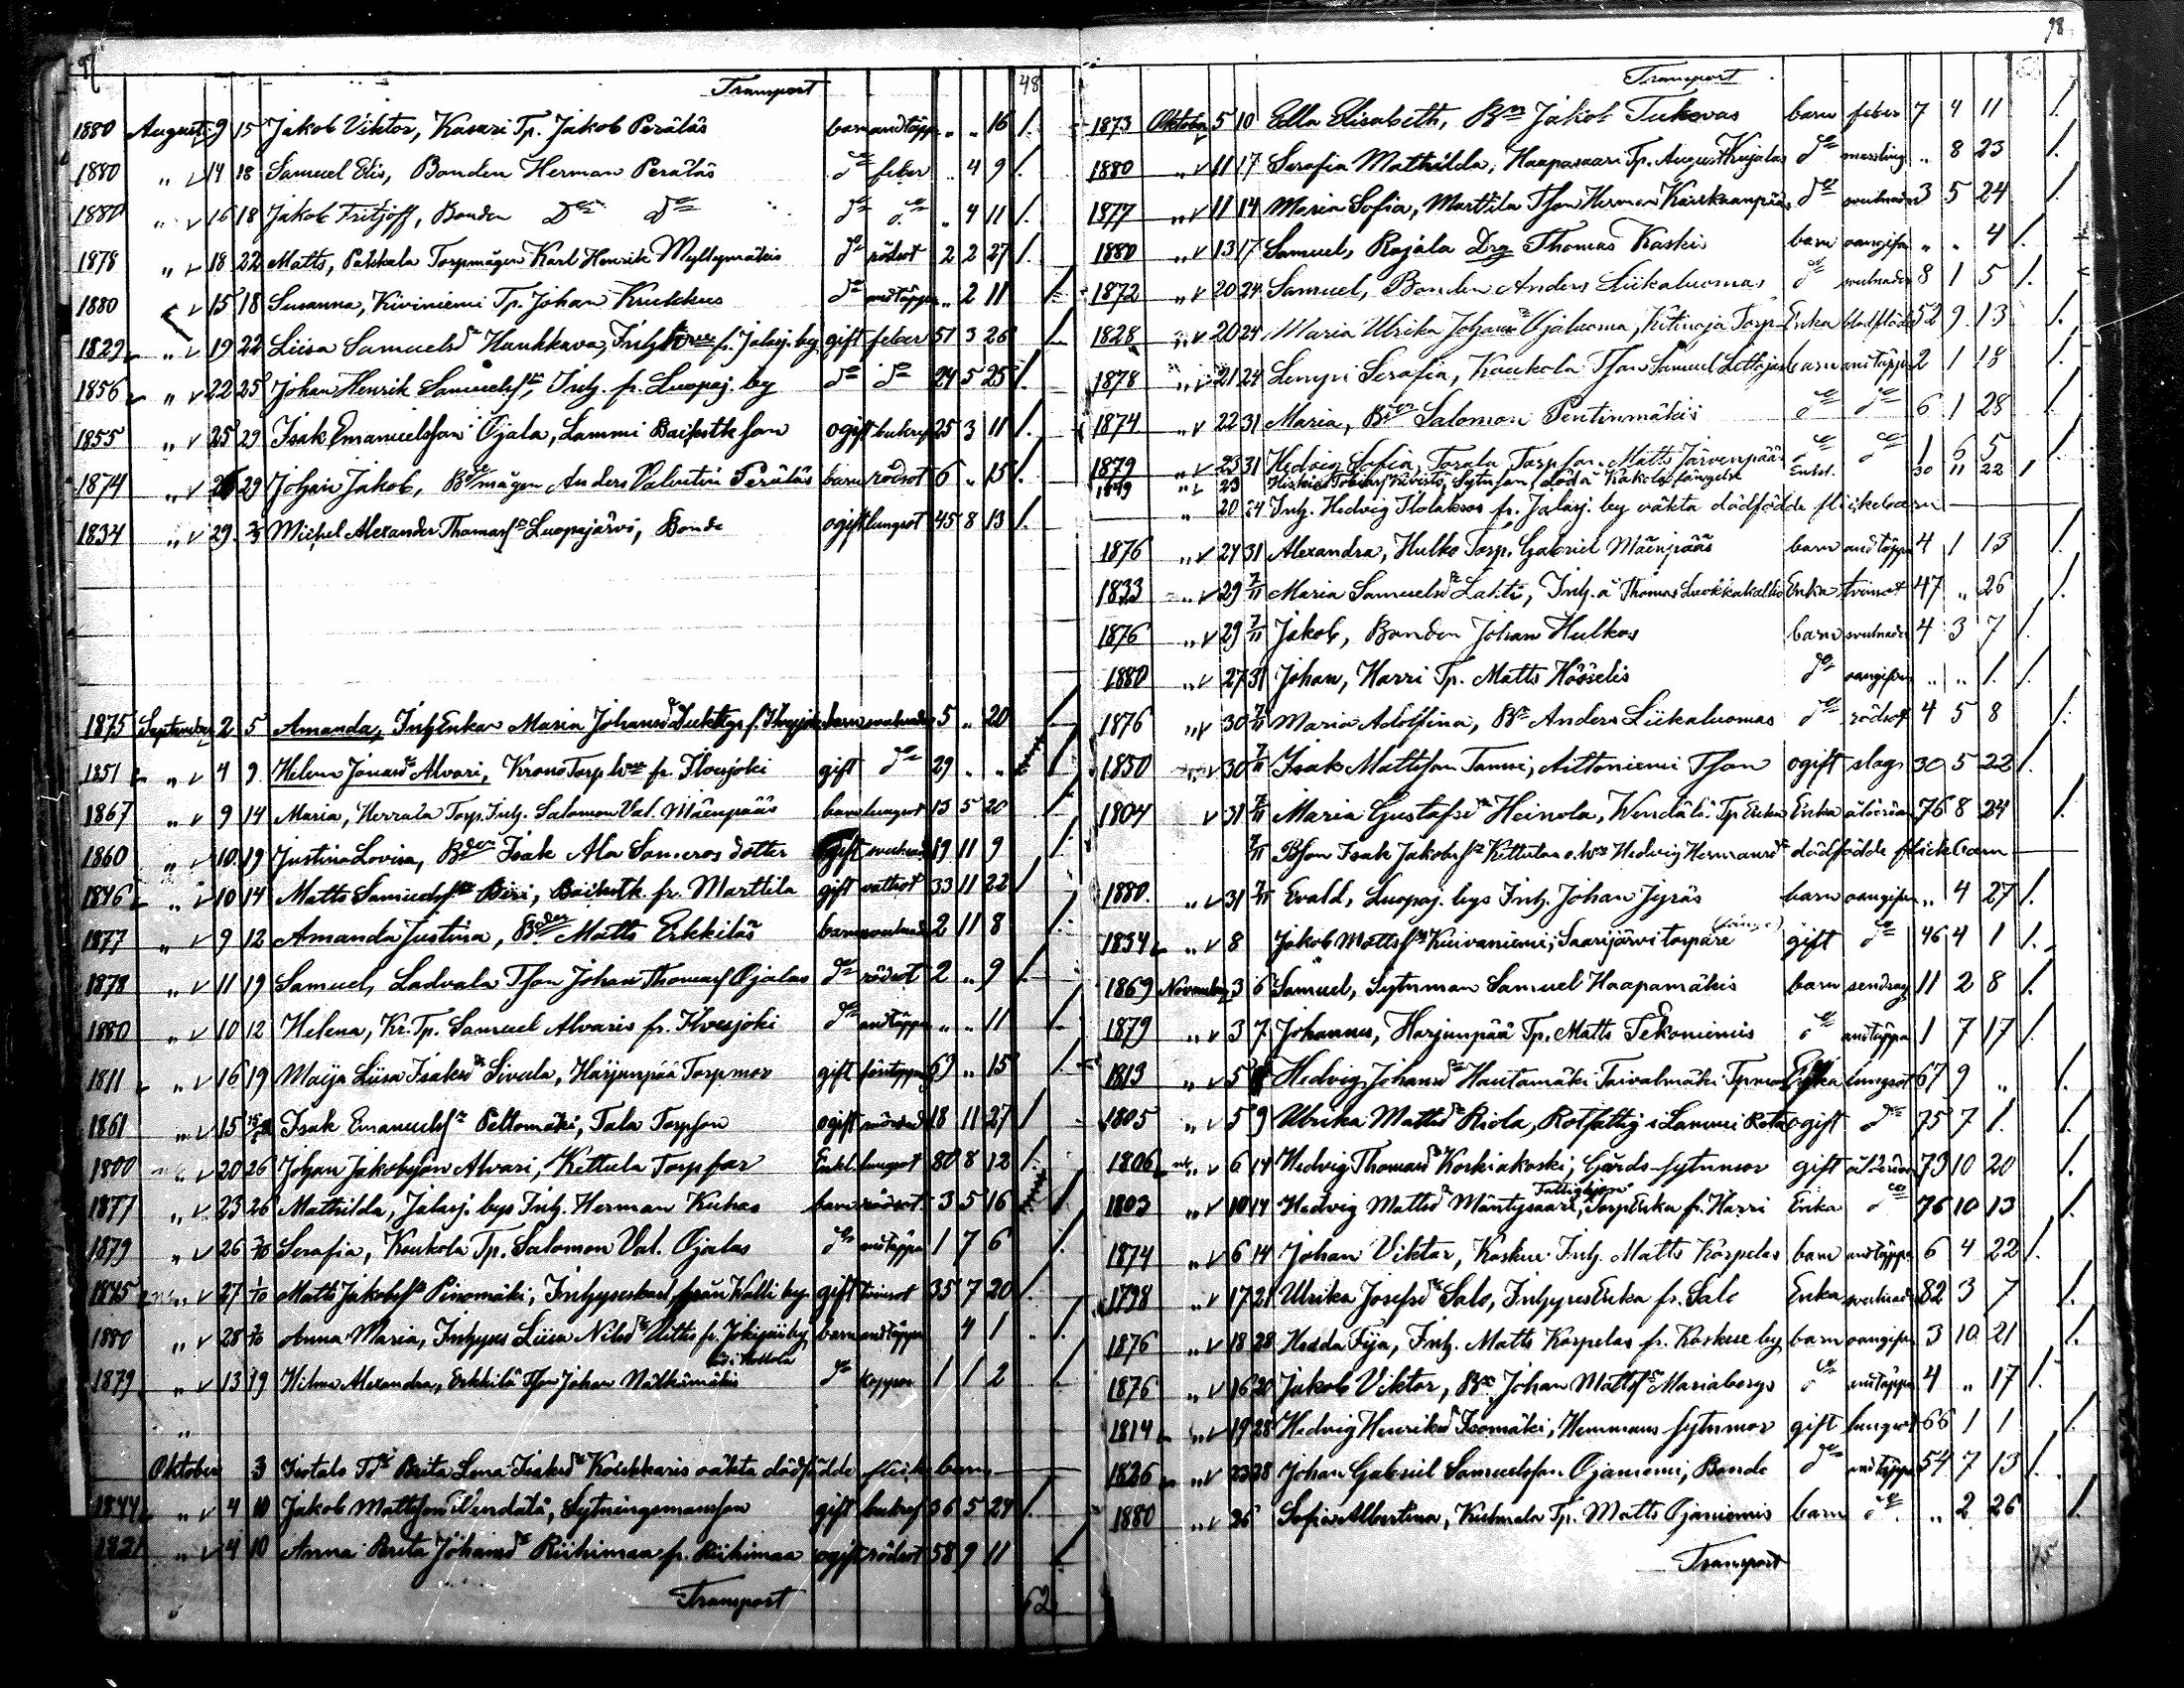 97
Transport 48
1880 August 9 15 Jakob Viktor, Kasari Tp. Jakob Peräläs barn andtäppa „ „ 16 /.
1880 „ v 14 18 Samuel Elis, Bonden Herman Peräläs do feber „ 4 9 /.
1880 „ v 16 18 Jakob Fritjoff, Bonden Do do do do „ 4 11 /.
1878 „ v 18 22 Matts, Pakkala Torpmågen Karl Henrik Myllymäkis do rödsot 2 2 27 /.
1880 v 15 18 Susanna, Kiviniemi Tp. Johan Krukkus do andtäppa „ 2 11 /
1829 „ v 19 22 Liisa Samuelsdr Haukkava, Inh. fr. Jalasj. by gift feber 51 3 26 /
1856 „ v 22 25 Johan Henrik Samuelsson, Inh. fr. Luopaj. by do do 24 5 25 /.
1855 „ v 25 29 Isak Emanuelsson Ojala, Lammi ogift 25 3 11 /.
1874 „ v 26 29 Johan Jakob, Bdemågen Anders Valentin Peräläs barn rödsot 6 „ 15 /.
1834 „ v 29 2/9 Michel Alexander Thomass. Luopajärvi, Bonde ogift lungsot 45 8 13 /.
1875 September 2 5 Amanda, Inh Enkan Maria Johansdr fr. Ilvesjoki barn 5 „ 20 /
1851 „ v 4 9 Helena Jonasdr Alvari, Krono Torp fr. Ilvesjoki gift do 29 „ „ /
1867 „ v 9 14 Maria, Herrala Torp. Inh. Salomon Val. Mäenpääs barn lungsot 13 5 20 /
1860 „ v 10 19 Justina Lovisa, Bden Isak Ala Sameros dotter ogift 19 11 9 /
1846 „ v 10 14 Matts Samuelss. fr. Marttila gift vattsot 33 11 22 /
1877 „ v 9 12 Amanda Justina, Bden Matts Erkkiläs barn 2 11 8 /.
1878 „ v 11 19 Samuel, Ladvala Tson Johan Thomass. Ojalas do rödsot 2 „ 9 /.
1880 „ v 10 12 Helena, Kr. Tp. Samuel Alvaris fr. Ilvesjoki do andtäppa „ „ 11 /.
1811 „ v 16 19 Maija Liisa Isaksdr Sivula, Harjunpää Torpmor gift 69 „ 15 /.
1861 „ v 15 Isak Emanuelss. Peltomäki, Tala Torpson ogift 18 11 27 /
1800 „ v 20 26 Johan Jakobsson Alvari, Kettula Torpfar Enkl. lungsot 80 8 12 /.
1877 „ v 23 26 Mathilda, Jalasj. bys Inh. Herman Kuhas barn rödsot 3 5 16 /.
1879 „ v 26 3/10 Serafia, Koukola Tp. Salomon Val. Ojalas do andtäppa 1 7 6 /.
1845 „ v 27 1/10 Matts Jakobss. Pinomäki, från Valli by gift tvinsot 35 7 20 /.
1880 „ v 28 3/10 Anna Maria, Inhyses Liisa barn andtäppa „ 4 1 /.
1879 „ v 13 19 Hilma Alexandra, Erkkilä Tson Johan Nälkämäkis do koppor 1 1 2 /
„
Oktober 3 Isotalo Brita Lena Isaksdr Koukkaris oäkta dödfödde flickebarn
1844 „ v 4 10 Jakob Mattsson Vendälä, Sytningsmansson gift 36 5 24 /.
1821 „ v 4 10 Anna Brita Johansdr Riihimaa fr. Riihimaa ogift rödsot 58 9 11 /.
Transport 62
98
Transport
1873 Oktober 5 10 Ella Elisabeth, Bn Jakob Tukevas barn feber 7 4 11 /.
1880 „ v 11 17 Serafia Mathilda, Haapasaari Tp. August Kujalas do messling „ 8 23 /.
1877 „ v 11 14 Maria Sofia, Marttila Tson Herman do svulnader 3 5 24 /
1880 „ v 13 17 Samuel, Rajala Drg Thomas Kaskis barn oangifven „ „ 4 /.
1872 „ v 20 24 Samuel, Bonden Anders Liikaluomas do svulnader 8 1 5 /.
1828 „ v 20 24 Maria Ulrika Johansdr Ojaluoma, Kitinoja Torp Enka blodflöde 52 9 13 /.
1878 „ v 21 24 Lempi Serafia, Koukola Tson Samuel barn andtäppa 2 1 18 /
1874 „ v 22 31 Maria, Bden Salomon Pentinmäkis do do 6 1 28 /.
1879 „ v 23 31 Hedvig Sofia, Torala Torpson Matts Järvenpääs do do 1 6 5 /
1849 „ v 23 Kivistö, Sytnson (död å Kakola fängelse Enkel. 30 11 22 /
„ 20 24 Inh. Hedvig fr. Jalasj. by oäkta dödfödde flickebarn
1876 „ v 24 31 Alexandra, Hulko Torp. Gabriel Mäenpääs barn andtäppa 4 1 13 /.
1833 „ v 29 7/11 Maria Samuelsdr Lahti, Inh. å Thomas Luokkakallio Enka tvinsot 47 „ 26 /.
1876 „ v 29 7/11 Jakob, Bonden Johan Hulkos barn svulnader 4 3 7 /.
1880 „ v 27 31 Johan, Harri Tp. Matts do oangifven „ „ 1 /.
1876 „ v 30 7/11 Maria Adolfina, Bn Anders Liikaluomas do rödsot 4 5 8 /.
1850 „ v 30 7/11 Isak Mattsson Tammi, Aittoniemi Tson ogift slag 30 5 22 /.
1804 v 31 7/11 Maria Gustafsdr Heinola, Wendälä Tp Enka Enka ålderdom 76 8 24 /.
7/11 Bson Isak Jakobss. Kettulas o. Hedvig Hermansdr dödfödde flickebarn
1880 „ v 31 7/11 Evald, Luopaj. bys Inh. Johan Jyräs barn oangifven „ 4 27 /.
1834 „ v 8 Jakob Mattss. Kuivaniemi, Saarijärvi torpare gift do 46 4 1 /.
1869 November 3 6 Samuel, Sytnman Samuel Haapamäkis barn sendrag 11 2 8 /.
1879 „ v 3 7 Johannes, Harjunpää Tp. Matts Tekoniemis do andtäppa 1 7 17 /.
1813 „ v 5 Hedvig Johansdr Hautamäki Taivalmäki Enka lungsot 67 9 „ /.
1805 „ v 5 9 Ulrika Mattsdr Riola, Rotfattig i Lammi Rota ogift do 75 7 1 /.
1806 „ v 6 14 Hedvig Thomasdr Koskiakoski, Gårds-sytnmor gift ålderdom 73 10 20 /.
Fattighjon
1803 „ v 10 14 Hedvig Mattsdr Mäntysaari, TorpEnka fr. Harri Enka do 76 10 13 /.
1874 „ v 6 14 Johan Viktor, Koskue Inh. Matts Korpelas barn andtäppa 6 4 22 /.
1798 „ v 17 21 Ulrika Josefsdr Salo, InhysesEnka fr. Salo Enka svulnader 82 3 7 /.
1876 „ v 18 28 Hedda Fija, Inh. Matts Korpelas fr. Koskue by barn oangifven 3 10 21 /.
1876 „ v 16 20 Jakob Viktor, Bn Johan Mattss. Mariabergs do andtäppa 4 „ 17 /.
1814 „ v 19 28 Hedvig Henriksdr Isomäki, Hemmans sytnmor gift lungsot 66 1 1 /.
1826 „ v 23 28 Johan Gabriel Samuelsson Ojaniemi, Bonde do andtäppa 54 7 13 /.
1880 „ v 26 Sofia Albertina, Kuhmala Tp. Matts Ojaniemis barn do „ 2 26 /.
Transport 75